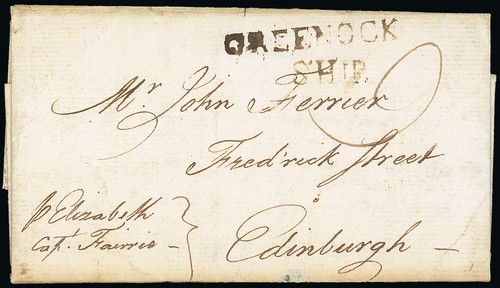 GREENOCK
SHIP
Mr John Ferrier
Fredrick Street
p Elizabeth
Capt. Fairrie
Edinburgh